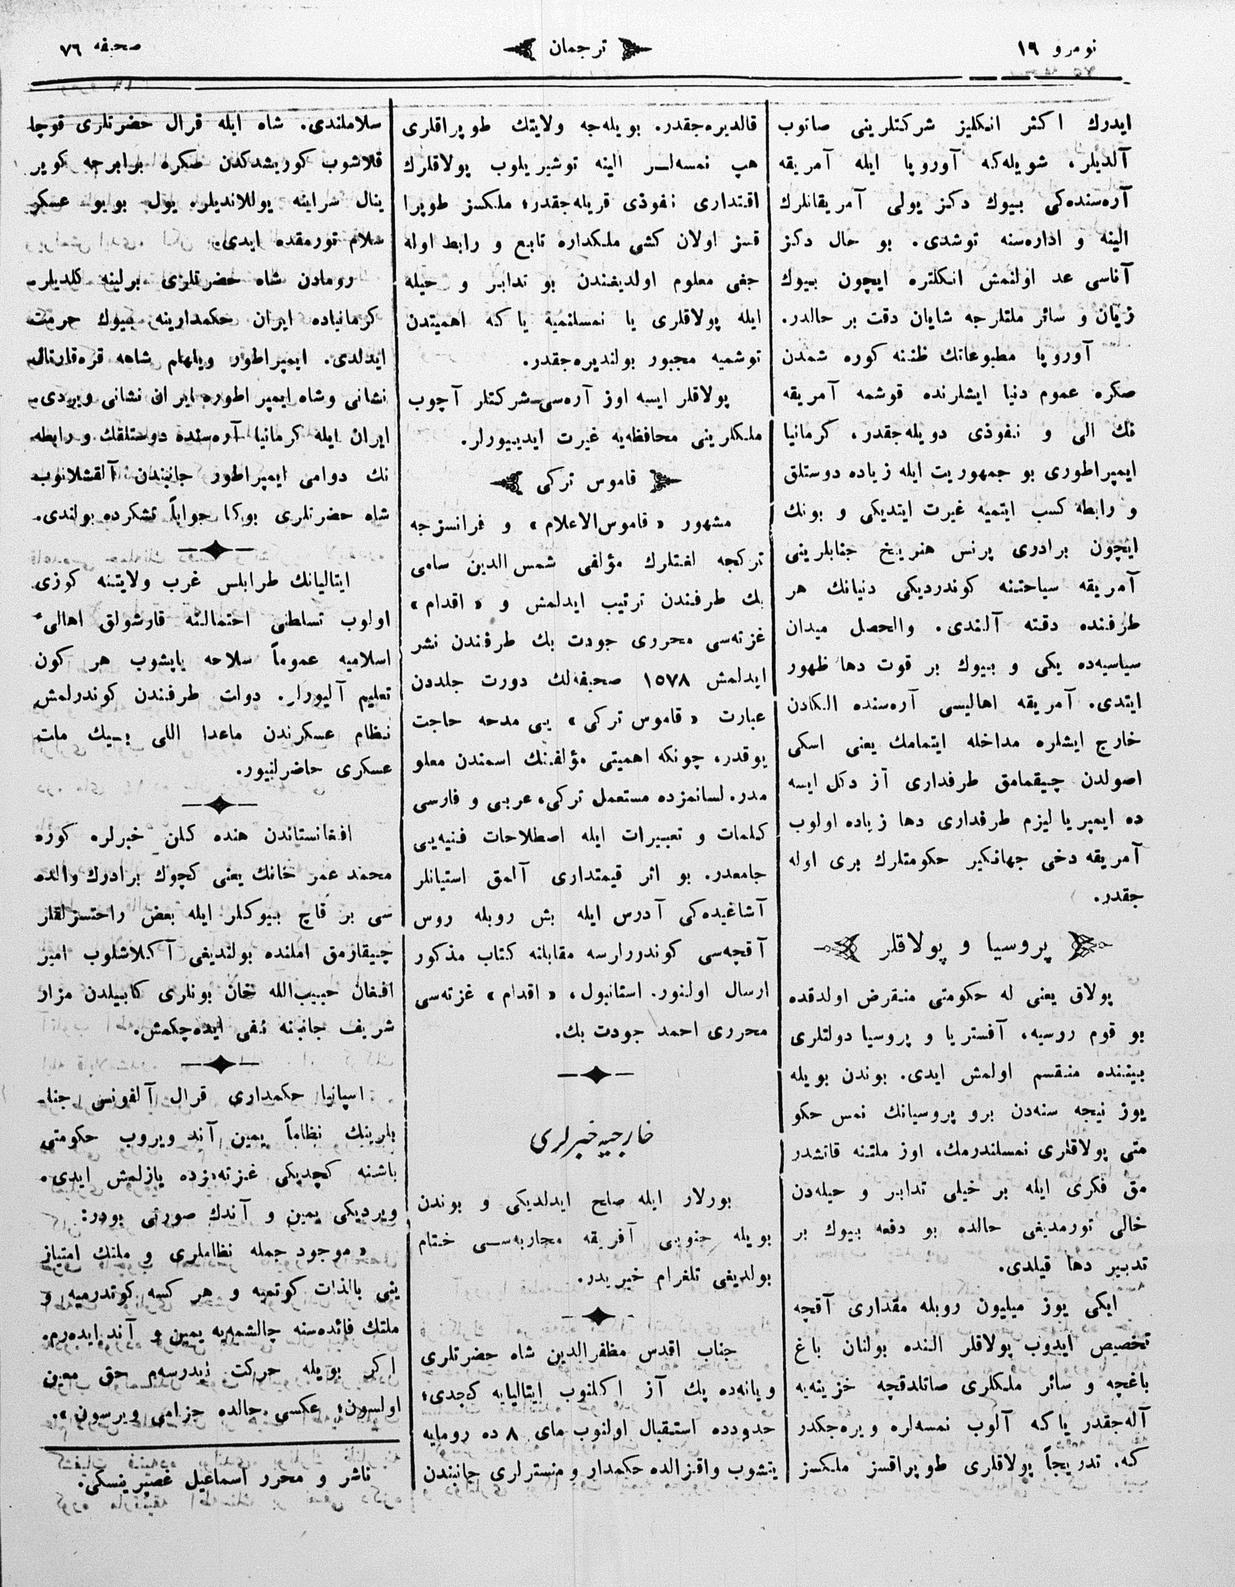 نومرو ١٩
ترجمان
صحیفه ٧٦
ایدرك اكثر انكلیز شركتلرینی صاتوب
آلدیلر، شویله‌كه آوروپا ایله آمریقه
آره‌سنده‌كی بیوك دكز یولی آمریقانلرك
الینه و اداره‌سنه توشدی. بو حال دكز
آتاسی عد اولنمش انكلتره ایچون بیوك
زیان و سائر ملتلرجه شایان دقت بر حالدر.
آوروپا مطبوعاتك ظننه كوره شمدن
صكره عموم دنیا ایشلرنده قوشمه آمریقه
نك الی و نفوذی دویله‌جقدر، كرمانیا
ایمپراطوری بو جمهوریت ایله زیاده دوستلق
و رابطه كسب ایتمیه غیرت ایتدیكی و بونك
ایچون برادری پرنس هنریخ جنابلرینی
آمریقه سیاحتنه كوندردیكی دنیانك هر
طرفنده دقته آلندی. والحصل میدان
سیاسیه‌ده یكی و بیوك بر قوت دها ظهور
ایتدی. آمریقه اهالیسی آره‌سنده الكادن
خارج ایشلره مداخله ایتمامك یعنی اسكی
اصولدن چیقمامق طرفداری آز دكل ایسه
ده ایمپریالیزم طرفداری دها زیاده اولوب
آمریقه دخی جهانكیر حكومتلرك بری اوله
جقدر.
پروسیا و پولاقلر
پولاق یعنی له حكومتی منقرض اولدقده
بو قوم روسیه، آفستریا و پروسیا دولتلری
بیننده منقسم اولمش ایدی. بوندن بویله
یوز نیجه سنه‌دن برو پروسیانك نمس حكو
متی پولاقلری نمسلندرمك، اوز ملتنه قاتشدر
مق فكری ایله بر خیلی تدابیر و حیله‌دن
خالی تورمدیغی حالده بو دفعه بیوك بر
تدبیر دها قیلدی.
ایكی یوز میلیون روبله مقداری آقچه
تخصیص ایدوب پولاقلر النده بولنان باغ
باغچه و سائر ملكلری صاتلدقچه خزینه‌یه
آله‌جقدر یاكه آلوب نمسه‌لره ویره‌جكدر
كه. تدریجاً پولاقلری طوپراقسز ملكسز
قالدیره‌جقدر. بویله‌جه ولایتك طوپراقلری
هپ نمسه‌لـر الینه توشیریلوب پولاقلرك
اقتداری نفوذی قریله‌جقدر؛ ملكسز طوپرا
قسز اولان كشی ملكداره تابع و رابط اوله
جغی معلوم اولدیغندن بو تدابیر و حیله
ایله پولاقلری یا نمسلنمیه یاكه اهمیتدن
توشمیه مجبور بولندیره‌جقدر.
پولاقلر ایسه اوز آره‌سی شركتلر آچوب
ملكلرینی محافظه‌یه غیرت ایدییورلر.
قاموس تركی
مشهور «قاموس‌الاعلام» و فرانسزجه
تركجه لغتلرك مؤلفی شمس‌الدین سامی
بك طرفندن ترتیب ایدلمش و «اقدام»
غزته‌سی محرری جودت بك طرفندن نشر
ایدلمش ١٥٧٨ صحیفه‌لك دورت جلددن
عبارت «قاموس تركی» یی مدحه حاجت
یوقدر، چونكه اهمیتی مؤلفنك اسمندن معلو
مدر. لسانمزده مستعمل تركی، عربی و فارسی
كلمات و تعبیرات ایله اصطلاحات فنیه‌یی
جامعدر. بو اثر قیمتداری آلمق استیانلر
آشاغیده‌كی آدرس ایله بش روبله روس
آقچه‌سی كوندورارسه مقابلنه كتاب مذكور
ارسال اولنور. استانبول، «اقدام» غزته‌سی
محرری احمد جودت بك.
خارجیه خبرلری
بورلار ایله صلح ایدلدیكی و بوندن
بویله جنوبی آفریقه محاربه‌سـی ختام
بولدیغی تلغرام خبریدر.
جناب اقدس مظفرالدین شاه حضرتلری
ویانه‌ده پك آز اكلنوب ایتالیایه كچدی؛
حدودده استقبال اولنوب مای ٨ ده رومایه
یتشوب واقزالده حكمدار و منسترلری جانبندن
سلاملندی. شاه ایله قرال حضرتلری قوچا
قلاشوب كوریشدكدن صكره برابرجه كویر
ینال سراینه یوللاندیلر. یول بویو عسكر
سلام تورمقده ایدی.
رومادن شاه حضرتلری برلینه كلدیلر.
كرمانیاده ایران حكمدارینه بیوك حرمت
ایدلدی. ایمپراطور ویلهام شاهه قره‌قارتال
نشانی وشاه ایمپراطوره ایران نشانی ویردی.
ایران ایله كرمانیا آره‌سنده دوستلقك و رابطه
نك دوامی ایمپراطور جانبندن آلقشلانوب
شاه حضرتلری بوكا جواباً تشكرده بولندی.
ایتالیانك طرابلس غرب ولایتنه كوزی
اولوب تسلطی احتمالنه قارشولق اهالیء
اسلامیه عموماً سلاحه یاپشوب هر كون
تعلیم آلیورلر. دولت طرفندن كوندرلمش
نظام عسكرندن ماعدا اللی بیك ملت
عسكری حاضرلنیور.
افغانستاندن هنده كلن خبرلره كوره
محمد عمر خانك یعنی كچوك برادرك والده
سی بر قاچ بیوكلر ایله بعض راحتسزلقلر
چیقارمق املنده بولندیغی آكلاشلوب امیر
افغان حبیب‌الله خان بونلری كابیلدن مزار
شریف جانبنه نفی ایده‌چكمش.
اسپانیا حكمداری قرال آلفونس جنا
بلرینك نظاماً یمین آند ویروب حكومتی
باشنه كچدیكی غزته‌مزده یازلمش ایدی.
ویردیكی یمین و آندك صورتی بودر:
«موجود جمله نظاملری و ملتك امتیاز
ینی بالذات كوتمیه و هر كسه كوتدرمیه و
ملتك فائده‌سنه چالشمه‌یه یمین و آند ایده‌رم.
اكر بویله حركت ایدرسه‌م حق معین
اولسون؛ عكسی حالده جزامی ویرسون».
ناشر و محرر اسماعیل غصپرینسكی.